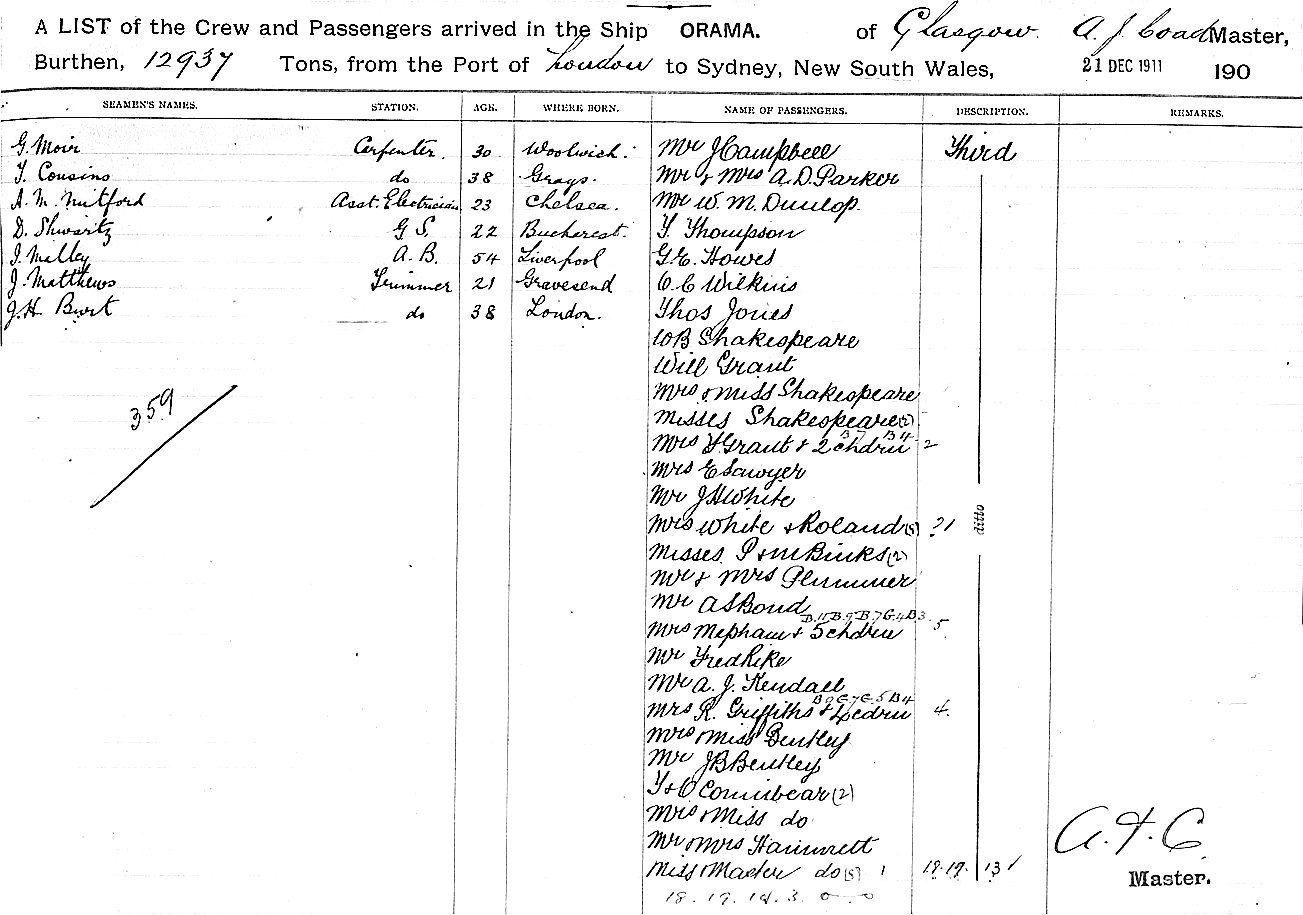 A LIST of the Crew and Passengers arrived in the Ship ORAMA. of Glasgow A. J. Coad Master,
Burthen, 12937 Tons, from the Port of London to Sydney, New South Wales, 21 DEC 1911 190
SEAMEN'S NAMES. STATION. AGE. WHERE BORN. NAME OF PASSENGERS. DESCRIPTION. REMARKS.
G. Moir Carpenter. 30 Woolwich. Mr J Campbell Third
T. Cousins do 38 Grays. Mr & Mrs A. D. Parker
A. M. Mitford Asst. Electrician 23 Chelsea. Mr W. M. Dunlop.
D. Shwartz G S. 22 Bucharest. T. Thompson
J. Malley A. B. 54 Liverpool G. E. Howes
J. Matthews Trimmer 21 Gravesend C. C Wilkins
J. H. Burt do 38 London. Thos Jones
WB Shakespeare
Will Grant
359
Mrs & Miss Shakespeare
Misses Shakespeare (2)
B 7 B 4
Mrs Grant & 2 chdrn 2
Mrs E Sawyer
Mr J H White
Mrs White & Roland 1 ditto
Misses P & M Binks (2)
Mr & Mrs Plummer
Mr A S Bond
B. 11 B. 9 B. 7 G. 4 B 3
Mrs Mepham & 5 chdrn 5
Mr Fred Pike
Mr A. J. Kendall
B 9 G 7 G. 5 B 4
Mrs R. Griffiths & 4 cdrn 4.
Mrs & Miss Bentley
Mr J B Bentley
Connibear (2)
Mrs & Miss do
Mr & Mrs Hammett
A. J. C
Miss & Master do 1 19. 19. 13 1
Master.
18. 19. 14. 3.